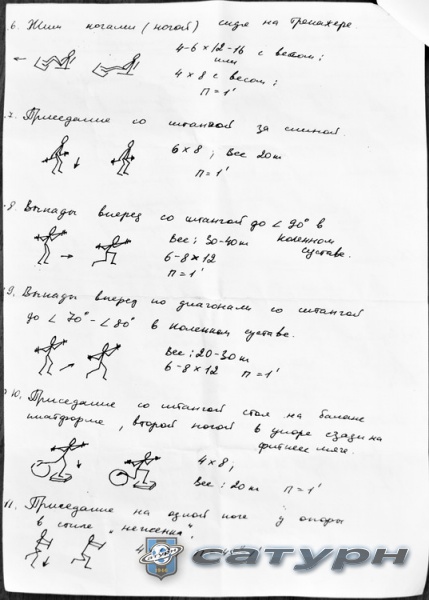 6. Жим ногами (ногой) сидя на тренажере.
4-6 × 12-16 с весом;
или
4 × 8 с весом;
П = 1'
7. Приседание со штангой за спиной.
6 × 8; Вес 20кг
П = 1'
8. Выпады вперед со штангой до ∠ 90° в
коленном
суставе.
Вес: 30-40кг
6-8 × 12
П = 1'
9. Выпады вперед по диагонали со штангой
до ∠ 70° - ∠ 80° в коленном суставе.
Вес: 20-30 кг
6-8 × 12 П = 1'
10. Приседание со штангой стоя на баланс
платформе, второй ногой в упоре сзади на
фитнес мяче.
4 × 8,
Вес: 20 кг П = 1'
11. Приседание на одной ноге у опоры
в стиле
4
САТУРН